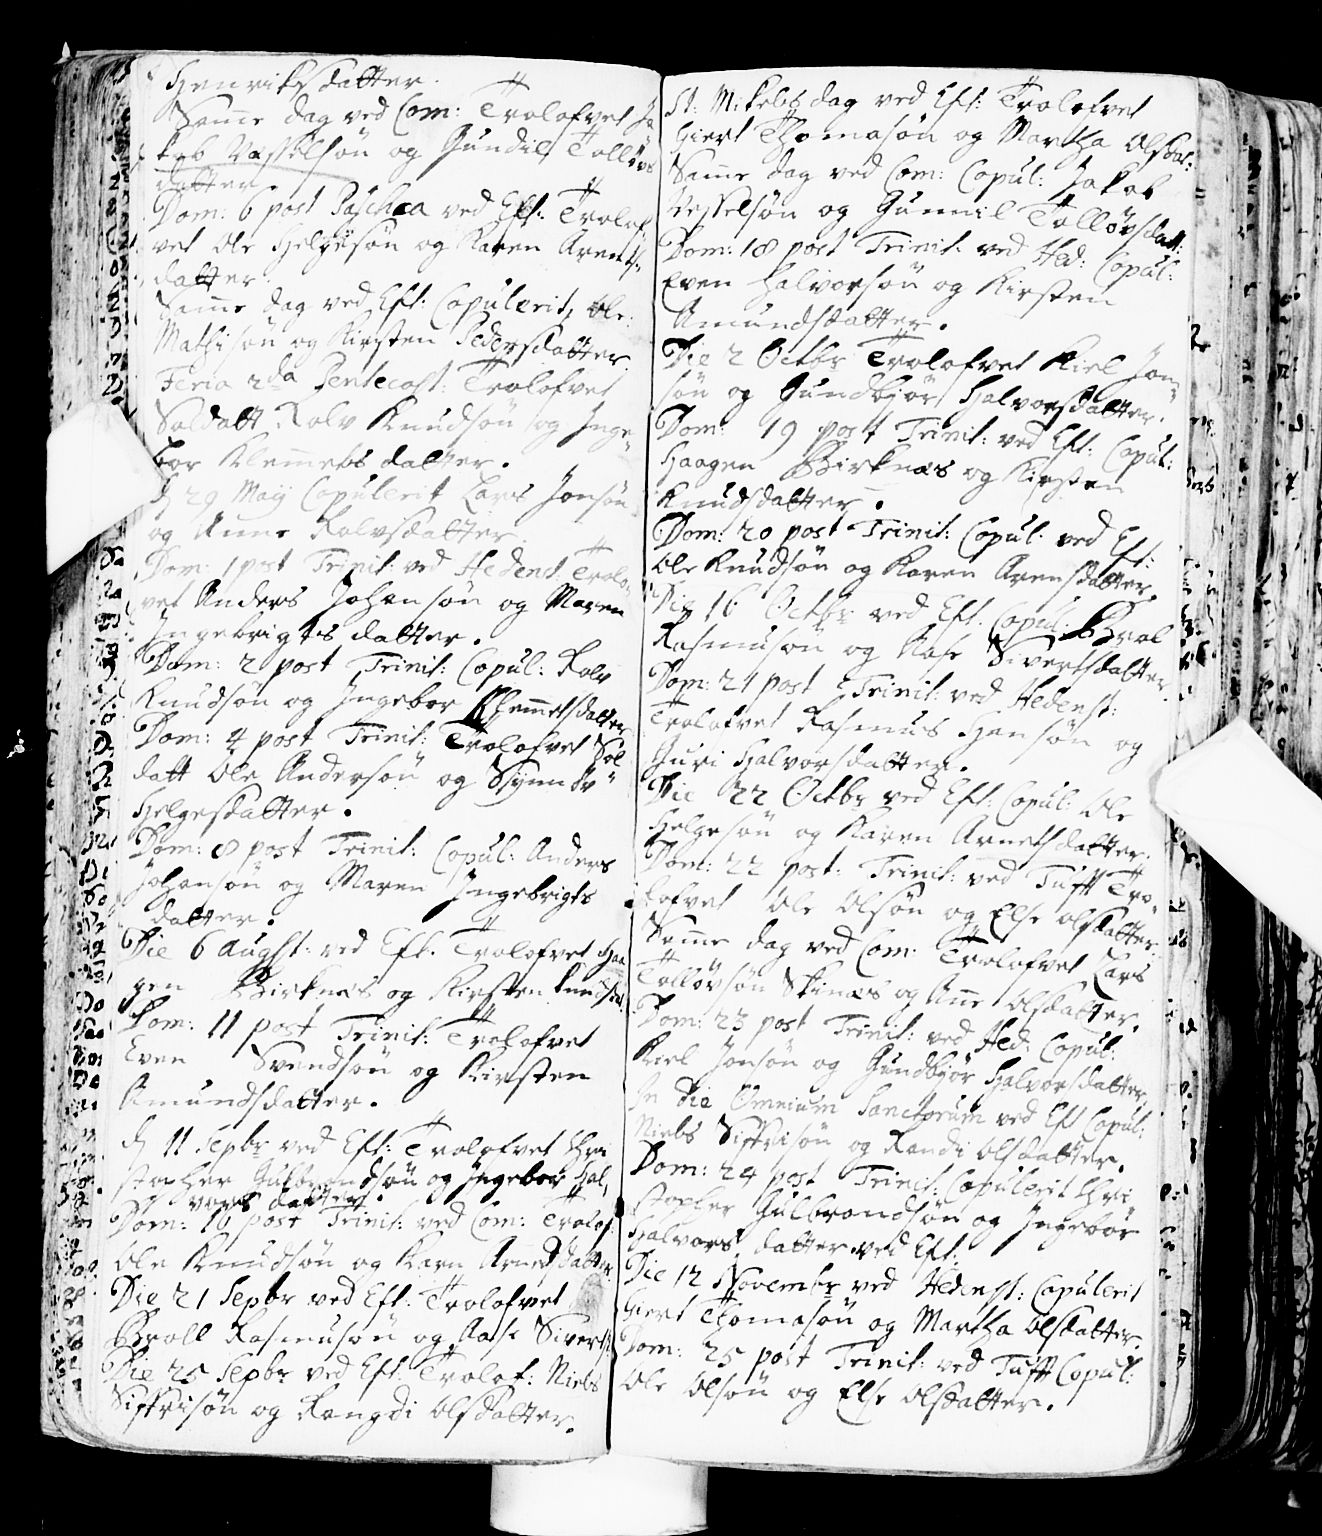 Henriksdatter.
Samme dag ved Com: Trolofvet Ja
kob Vesselsøn og Gundil Tolløvs
datter.
Dom: 6 post Pascha ved Eft: Trolof,
vet Ole Helgesøn og Karen Arents,
datter.
Samme dag ved Eft: Copulerit, Ole
Mathisøn og Kirsten Pedersdatter.
Feria 2da Pentecost: Trolofvet
Soldatt Rolv Knudsøn og Inge,
bor Klemmetsdatter.
d 29 Maij Copulerit Lars Jonsøn
og Anne Rolvsdatter.
Dom: 1 post Trinit: ved Hedenst: Trolo,
vet Anders Johansøn og Maren
Ingebrigtsdatter.
Dom: 2 post Trinit: Copul: Rolv
Knudsøn og Ingebor Klemmetsdatter
Dom: 4 post Trinit: Trolofvet Sol
datt Ole Andersøn og
Helgesdatter.
Dom: 8 post Trinit: Copul: Anders
Johansøn og Maren Ingebrigts
datter.
Die 6 Augst: ved Eft: Trolofvet Haa
gen Birknæs og Kirsten Knudsdat:
Dom: 11 post Trinit: Trolofvet
Even Svendsøn og Kirsten
Amundsdatter.
d 11 Sepbr ved Eft: Trolofvet Chri
stopher Gulbrandsøn og Ingebor Hal,
vorsdatter.
Dom: 16 post Trinit: ved Com: Trolof:
Ole Knudsøn og Karn Arnesdatter.
Die 21 Sepbr ved Eft: Trolofvet
Broll Rasmusøn og Aase Siverts:
Die 25 Sepbr ved Eft: Trolof: Niels
Siffrisøn og Rangdi Olsdatter.
St: Mikels dag ved Eft: Trolofvet
Giert Thomasøn og Martha Olsdat:
Samme dag ved Com: Copul: Jakob
Vesselsøn og Gunnil Tolløvsdatt:
Dom: 18 post Trinit: ved Hed: Copul:
Even Halvorsøn og Kirsten
Amundsdatter.
Die 2 Octbr Trolofvet Kiel Jon,
søn og Gundbjør Halvorsdatter.
Dom: 19 post Trinit: ved Eft: Copul:
Haagen Birknæs og Kirsten
Knudsdatter.
Dom: 20 post Trinit: Copul: ved Eft:
Ole Knudsøn og Karen Arensdatter.
Die 16 Octbr ved Eft: Copul: Brol
Rasmusøn og Aase Sivertsdatter.
Dom: 21 post Trinit: ved Hedenst:
Trolofvet Rasmus Hensøn og
Guri Halvorsdatter.
Die 22 Octbr ved Eft: Copul: Ole
Helgesøn og Karen Arnetsdatter.
Dom: 22 post: Trinit: ved Tufft Tro,
lofvet Ole Olsøn og Else Olsdatter.
Samme dag ved Com: Trolofvet Lars
Tolløvsøn Skinæs og Anne Olsdatter.
Dom: 23 post Trinit: ved Hed: Copul:
Kiel Jonsøn og Gundbjør Halvorsdatter,
In die Omnium Sanctorum ved Eft Copul:
Niels Siffrisøn og Randi Olsdatter.
Dom: 24 post Trinit: Copulerit Chri
stopher Gulbrandsøn og Ingebor
Halvorsdatter ved Eft:
Die 12 Novembr ved Hedenst: Copulerit
Giert Thomasøn og Martha Olsdatter.
Dom: 25 post Trinit: ved Tufft Copul:
Ole Olsøn og Else Olsdatter.